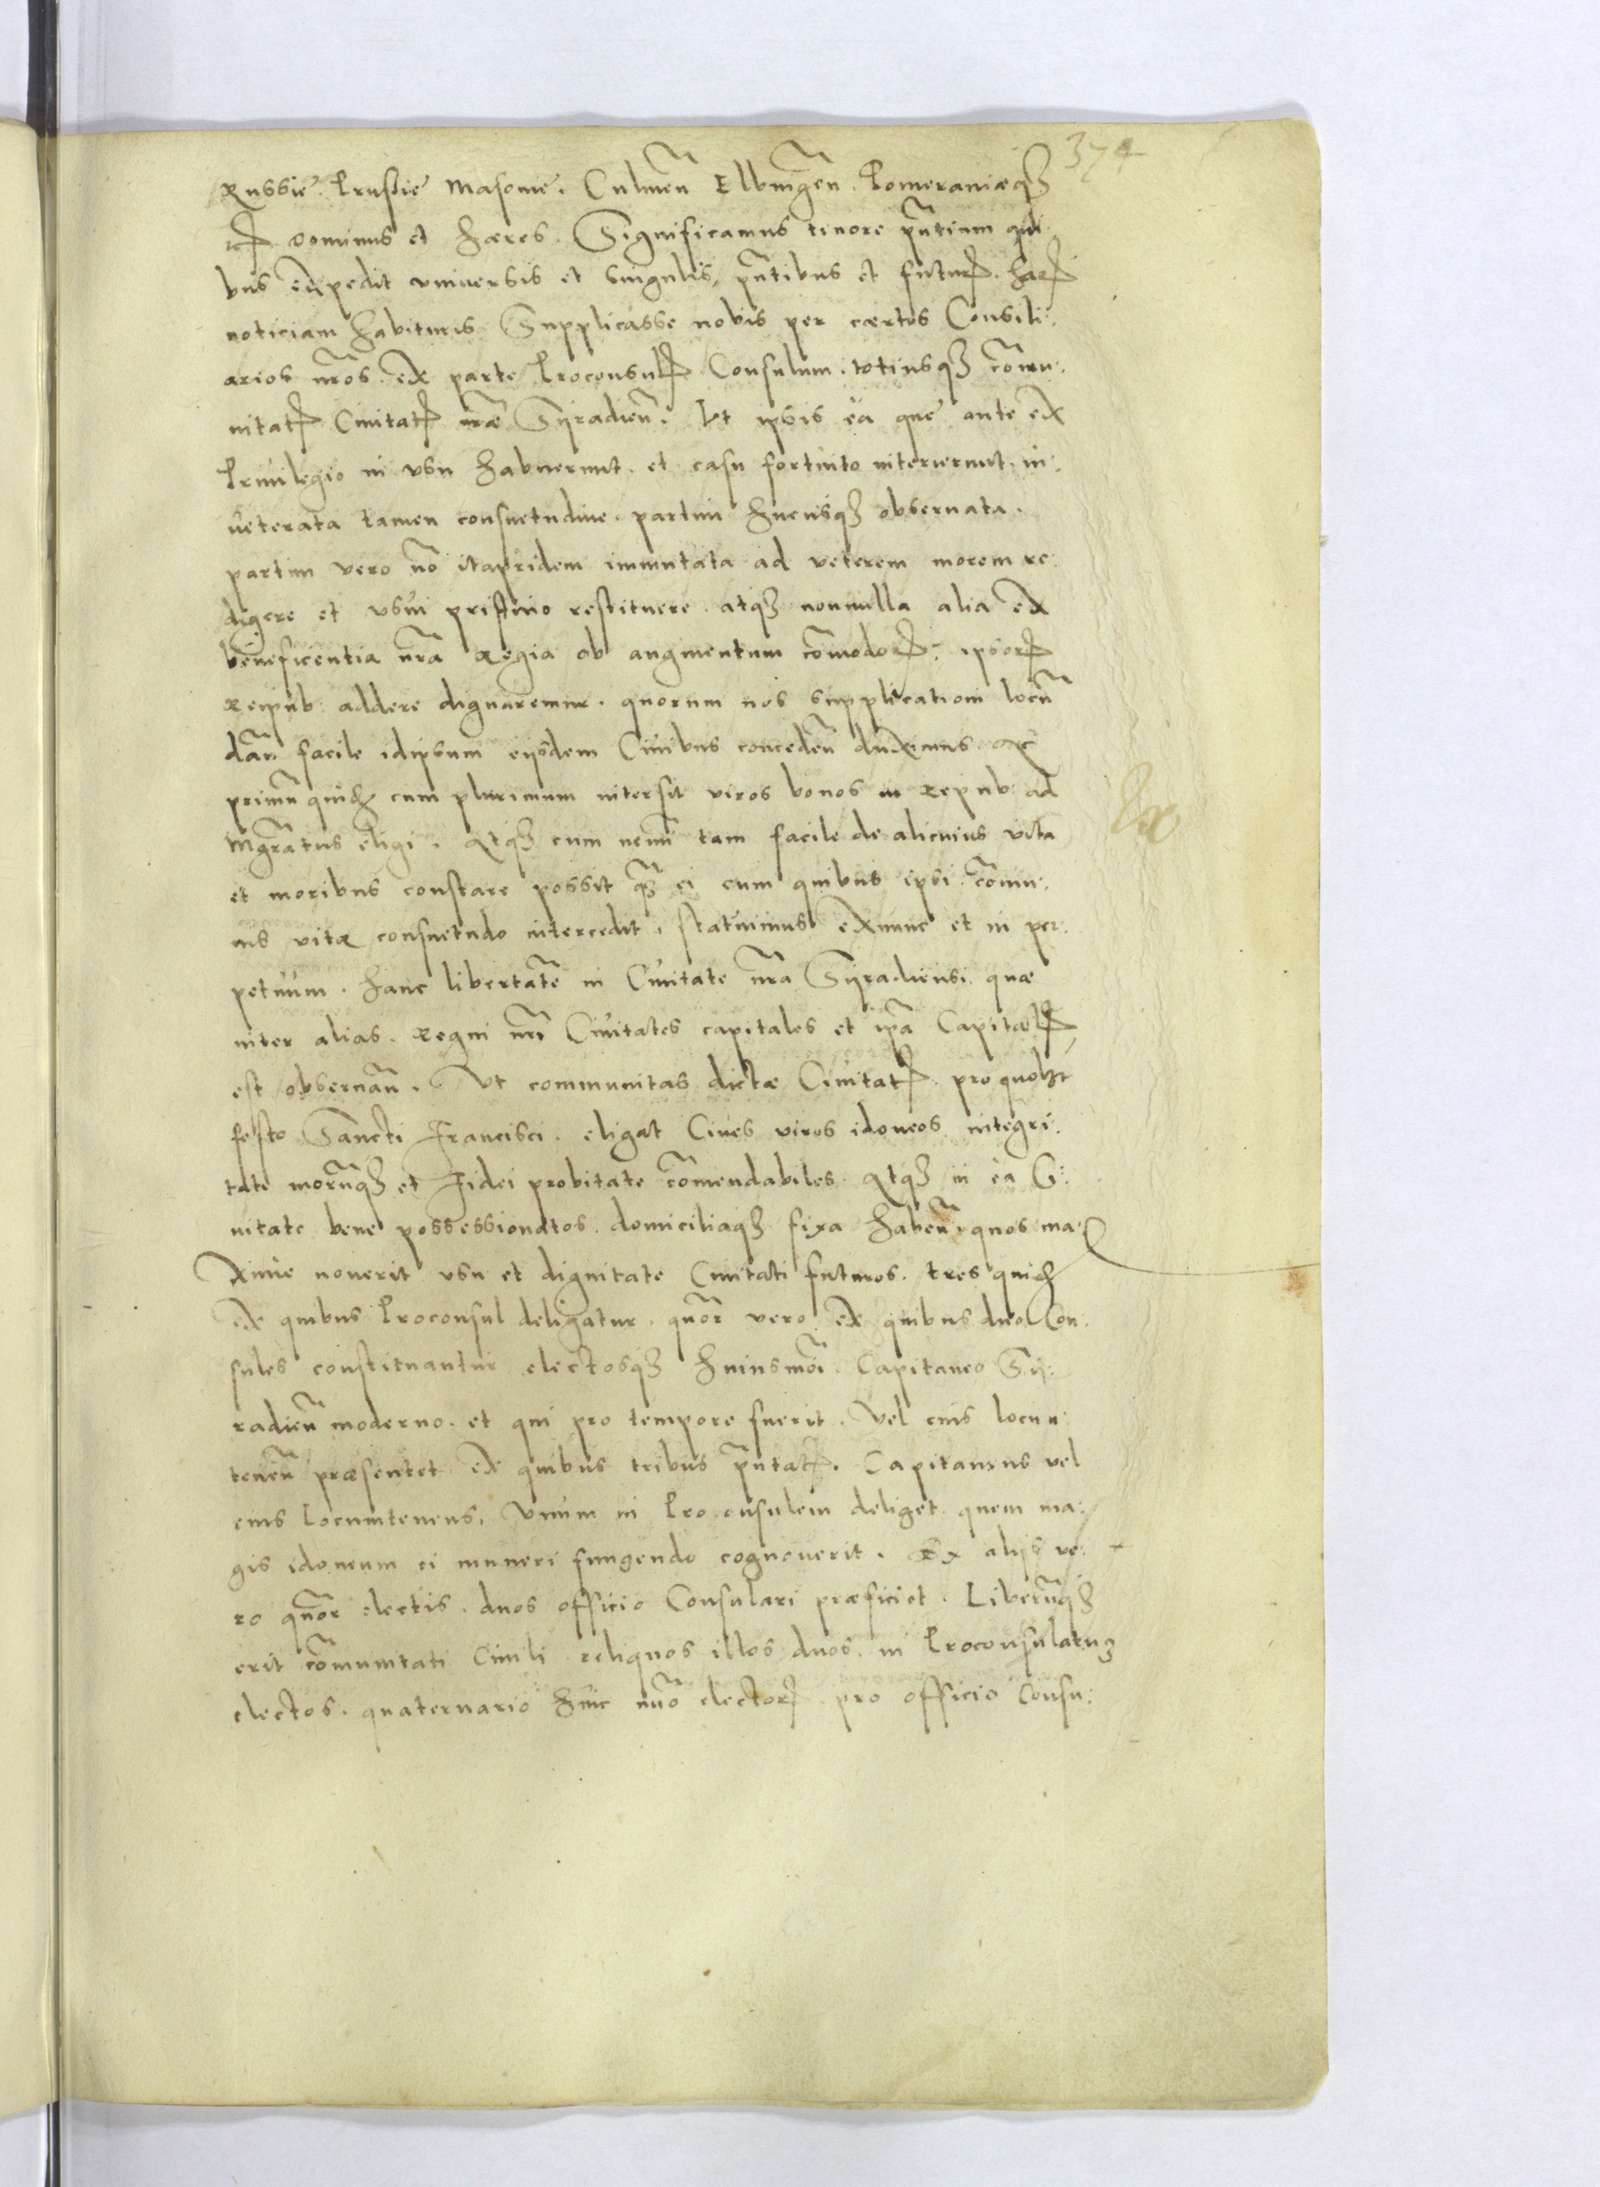 374
Russie Prussie Masouie. Culmen̄ Elbingen̄. Pomeraniæq3
etc dominus et hæres. Significamus tenore pn̄tium qui
bus expedit vniuersis et singulis, pn̄tibus et futur. har
noticiam habituris Supplicasse nobis per certos Consili:
arios nr̄os. ex parte Proconsul Consulum. totiusq3 com̄u:
nitat Ciuitat nr̄æ Syradien̄. Ut ipsis ea que ante ex
Priuilegio in vsu habuerunt. et casu fortuito interierunt. in:
ueterata tamen consuetudine. partim hucusq3 obseruata.
partim vero nō itapridem immutata ad veterem morem re:
digere et vsui pristino restituere. atq3 nonnulla alia ex
beneficentia nr̄a Regia ob augmentum com̄odor: ipsor
Reipub: addere dignaremur. quorum nos supplicationi locū
dan̄ facile idipsum eijsdem Ciuibus conceden̄ duximus ac
primū quid cum plurimum intersit viros bonos in Repub: ad
Mgr̄atus eligi. Atq3 cum nemī tam facile de alicuius vita
et moribus constare possit q̄ ei cum quibus ipsi com̄u:
nis vitæ consuetudo intercedit. statuimus exnunc et in per:
petuum. hanc libertatē in Ciuitate nr̄a Syradiensi quæ
inter alias. Regni nr̄i Ciuitates capitales et ip̄a Capital
est obseruan̄. Vt communitas dictæ Ciuitat pro quolibt
festo Sancti Francisci. eligat Ciues viros idoneos integri:
tate morūq3 et Fidei probitate com̄endabiles. Atq3 in ea Ci:
uitate bene possessionatos. domiciliaq3 fixa haben̄. quos ma:
xime nouerit vsu et dignitate Ciuitati futuros. tres quid
ex quibus Proconsul deligatur. quōr vero ex quibus duo Con:
sules constituantur electosq3 huiusmōi. Capitaneo Sy:
radien̄ moderno. et qui pro tempore fuerit. Vel eius locum
tenen̄ præsentet ex quibus tribus pn̄tat. Capitaneus vel
eius Locumtenens, vnum in Proconsulem deliget quem ma:
gis idoneum ei muneri fungendo cognouerit. Ex alijs ve:
ro quōr electis. duos officio Consulari præficiet. Liberūq3
erit com̄unitati Ciuili reliquos illos duos. in Proconsulatu3
electos. quaternario huic nūo elector pro officio Consu: